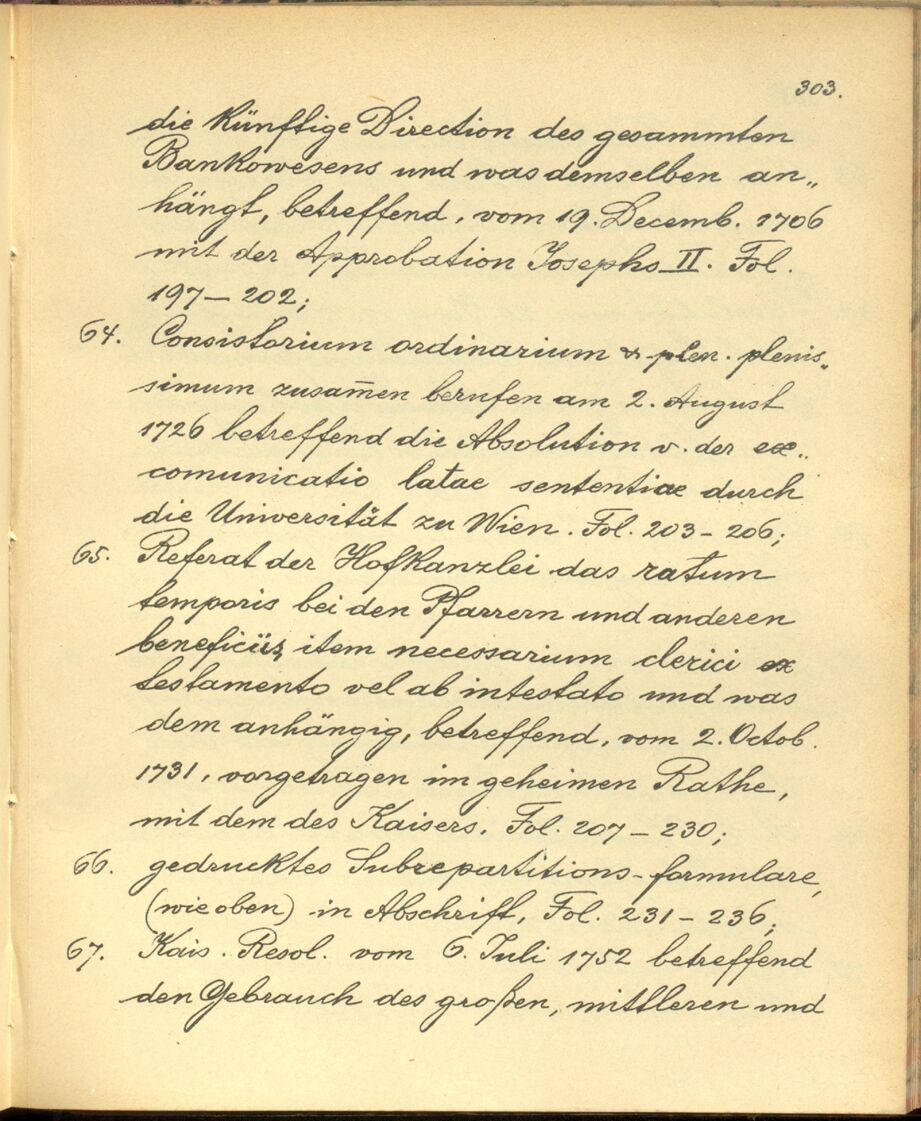 303.
die künfftige Direction des gesammten
Bankowesens und was demselben an„
hängt, betreffend, vom 19. Decemb. 1706
mit der Approbation Josephs II. Fol.
197 – 202;
64. Consistorium ordinarium & plen. plenis„
simum zusam̅en berufen am 2. August
1726 betreffend die Absolution v. der ex„
comunicatio latae sententiae durch
die Universität zu Wien. Fol. 203 – 206;
65. Referat der Hofkanzlei das ratum
temporis bei den Pfarrern und anderen
beneficiis, item necessarium clerici ex
testamento vel ab intestato und was
dem anhängig, betreffend, vom 2. Octob.
1731, vorgetragen im geheimen Rathe,
mit dem des Kaisers. Fol. 207 – 230;
66. gedrucktes Subrepartitions-formulare,
(wie oben) in Abschrift, Fol. 231 – 236;
67. Kais. Resol. vom 6. Juli 1752 betreffend
den Gebrauch des großen, mittleren und